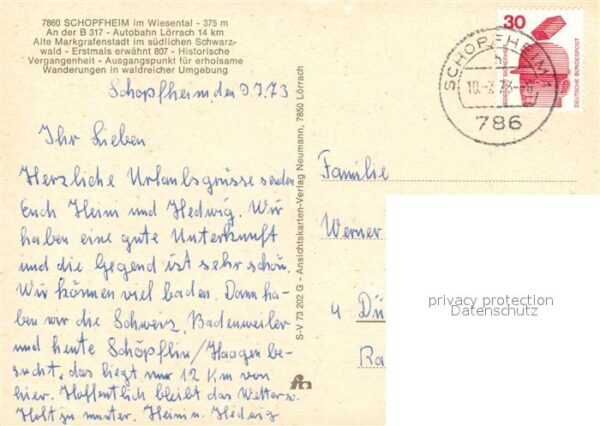 7860 SCHOPFHEIM im Wiesental - 375 m
An der B 317 - Autobahn Lörrach 14 km
Alte Markgrafenstadt im südlichen Schwarz-
wald - Erstmals erwähnt 807 - Historische
Vergangenheit - Ausgangspunkt für erholsame
Wanderungen in waldreicher Umgebung
Schopfheim, den 9.7.73
Ihr Lieben
Herzliche Urlaubsgrüsse senden
Euch Heim und Hedwig. Wir
haben eine gute Unterkunft
und die Gegend ist sehr schön.
Wir können viel baden. Dann ha-
ben wir die Schweiz, Badenweiler
und heute Schöpflin/Haagen be-
sucht, das liegt nur 12 Km von
hier. Hoffentlich bleibt das Wetter so.
Holt ju munter. Heini u. Hedwig
S-V 73 202 G - Ansichtskarten-Verlag Neumann, 7850 Lörrach
30
DEUTSCHE BUNDESPOST
SCHOPFHEIM 1
10.-7.73
786
Familie
Werner
4 Dü
Ra
privacy protection
Datenschutz